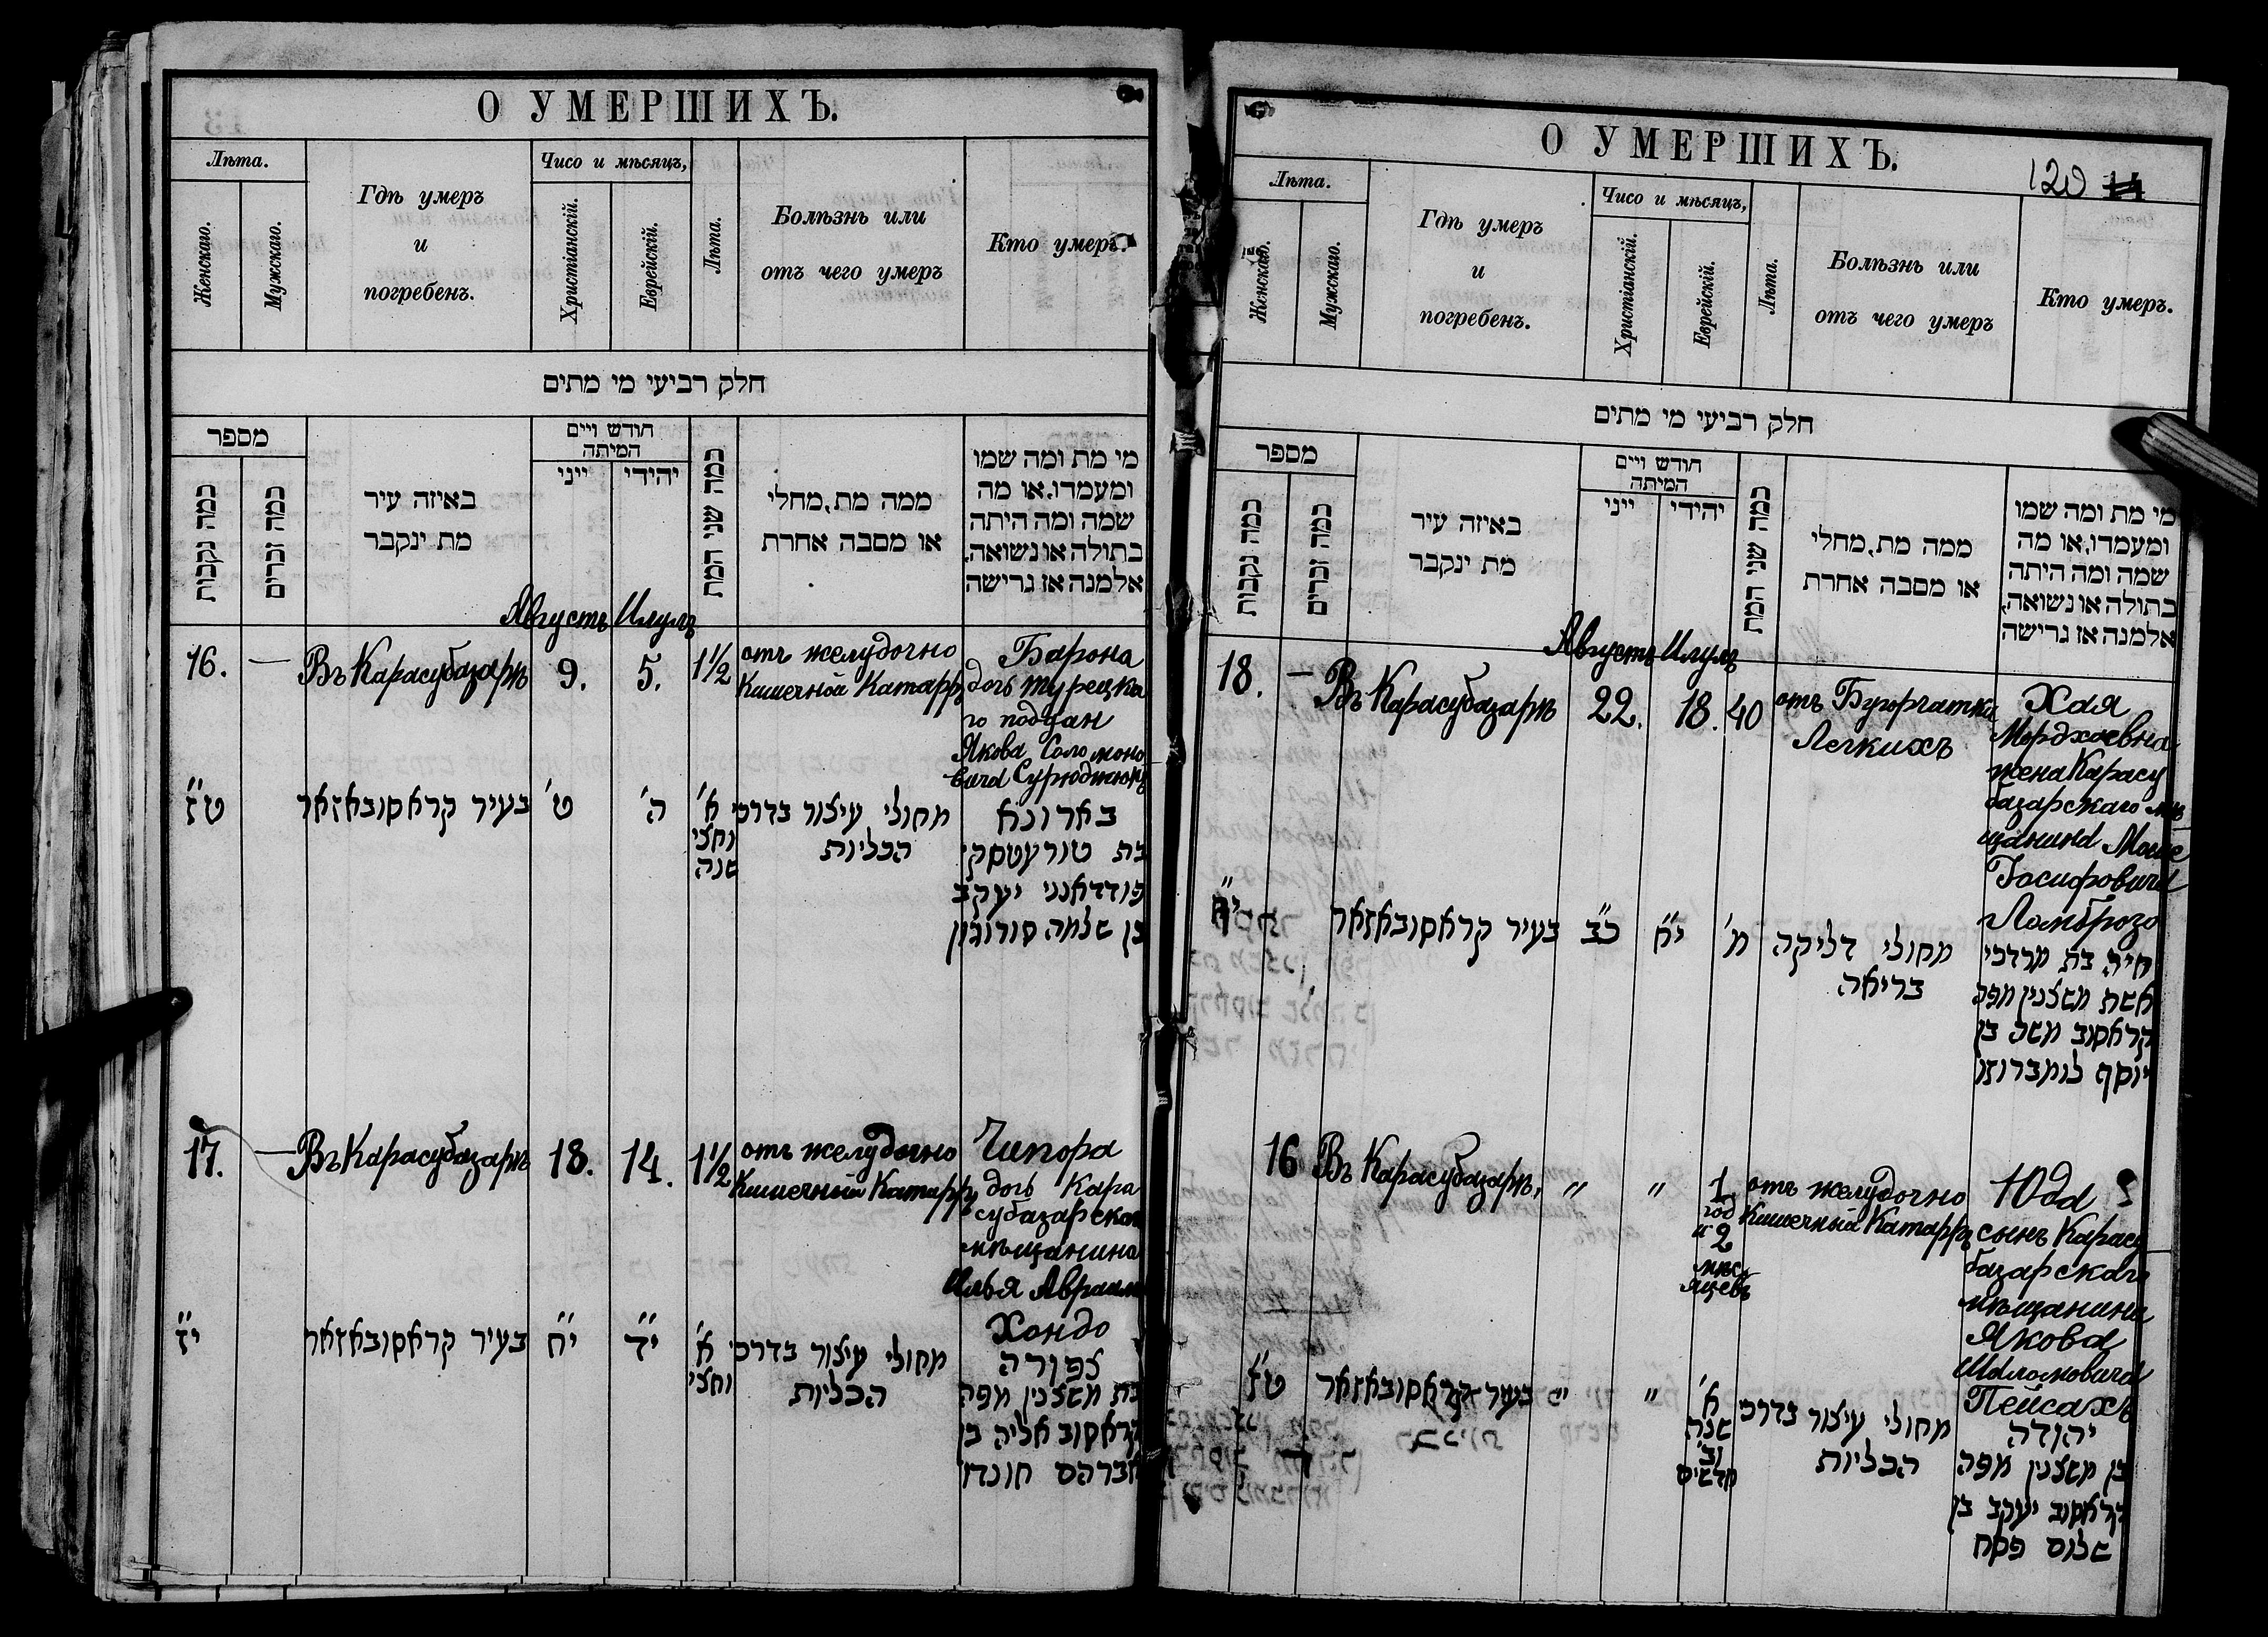 О УМЕРШИХЪ.
Лѣта.
Женскаго.
Мужскаго.
Гдѣ умеръ
и
погребенъ.
Чисо и мѣсяцъ,
Христіанскій.
Еврейскій.
Лѣта.
Болѣзнь или
отъ чего умеръ
Кто умеръ.
חלק רביעי מי מתים
מספר
כמה נקבות
כמה זכרים
באיזה עיר
מת ינקבר
חודש ויים
המיתה
ייני
יהידי
כמה שני המת
ממה מת, מחלי
או מסבה אחרת
מי מת ומה שמו
ומעמדו, או מה
שמה ומה היתה
בתולה או נשואה,
אלמנה אז גרישה
Августъ Илулъ
16. — Въ Карасубазарѣ 9. 5. 1½
отъ желудочно
Кишечной Катарръ
Барона
дочь турецка
го поддан
Якова Соломоно
вича Сурюджюнъ
ט״ז
בעיר קראסובאזאר
ט׳
ה׳
א׳
וחצי
שנה
מחולי עיצור בדרכי
הכליות
בארונא
בת טורעטסקי
פודדאנני יעקב
בן שלמה סורוגון
17. — Въ Карасубазарѣ 18. 14. 1½
отъ желудочно
Кишечный Катарръ
Чипора
дочь Кара
субазарскаго
мѣщанина
Илья Авраам
Хондо
י״ז
בעיר קראסובאזאר
י״ח
י״ד
א׳
וחצי
מחולי עיצור בדרכי
הכליות
צפורה
בת משצנין מפה
קראסוב אליה בן
אברהם חונדו
О УМЕРШИХЪ.
120 14
Лѣта.
Женскаго.
Мужскаго.
Гдѣ умеръ
и
погребенъ.
Чисо и мѣсяцъ,
Христіанскій.
Еврейскій.
Лѣта.
Болѣзнь или
отъ чего умеръ
Кто умеръ.
חלק רביעי מי מתים
מספר
כמה נקבות
כמה זכרים
באיזה עיר
מת ינקבר
חודש ויים
המיתה
ייני
יהידי
כמה שני המת
ממה מת, מחלי
או מסבה אחרת
מי מת ומה שמו
ומעמדו, או מה
שמה ומה היתה
בתולה או נשואה,
אלמנה אז גרישה
Августъ Илулъ
18. — Въ Карасубазарѣ 22. 18. 40
отъ Бугорчатки
Легкихъ
Хая
Мордхаевна
жена Карасу
базарскаго мѣ
щанина Моше
Іосифовича
Ломброзо
י״ח
בעיר קראסובאזאר
כ״ב
י״ח
מ׳
מחולי דליקה
בריאה
חיה בת מרדכי
אשת משצנין מפה
קראסוב משה בן
יוסף לומברוזו
16 Въ Карасубазарѣ, " "
1
год
и 2
мѣс
яцевъ
отъ желудочно
Кишечный Катарръ
Юда
сынъ Карасу
базарскаго
мѣщанина
Якова
Шаломовича
Пейсахъ
ט״ז
בעיר קראסובאזאר " "
א׳
שנה
וב׳
חדשים
מחולי עיצור בדרכי
הכליות
יהודה
בן משצנין מפה
קראסוב יעקב בן
שלום פסח